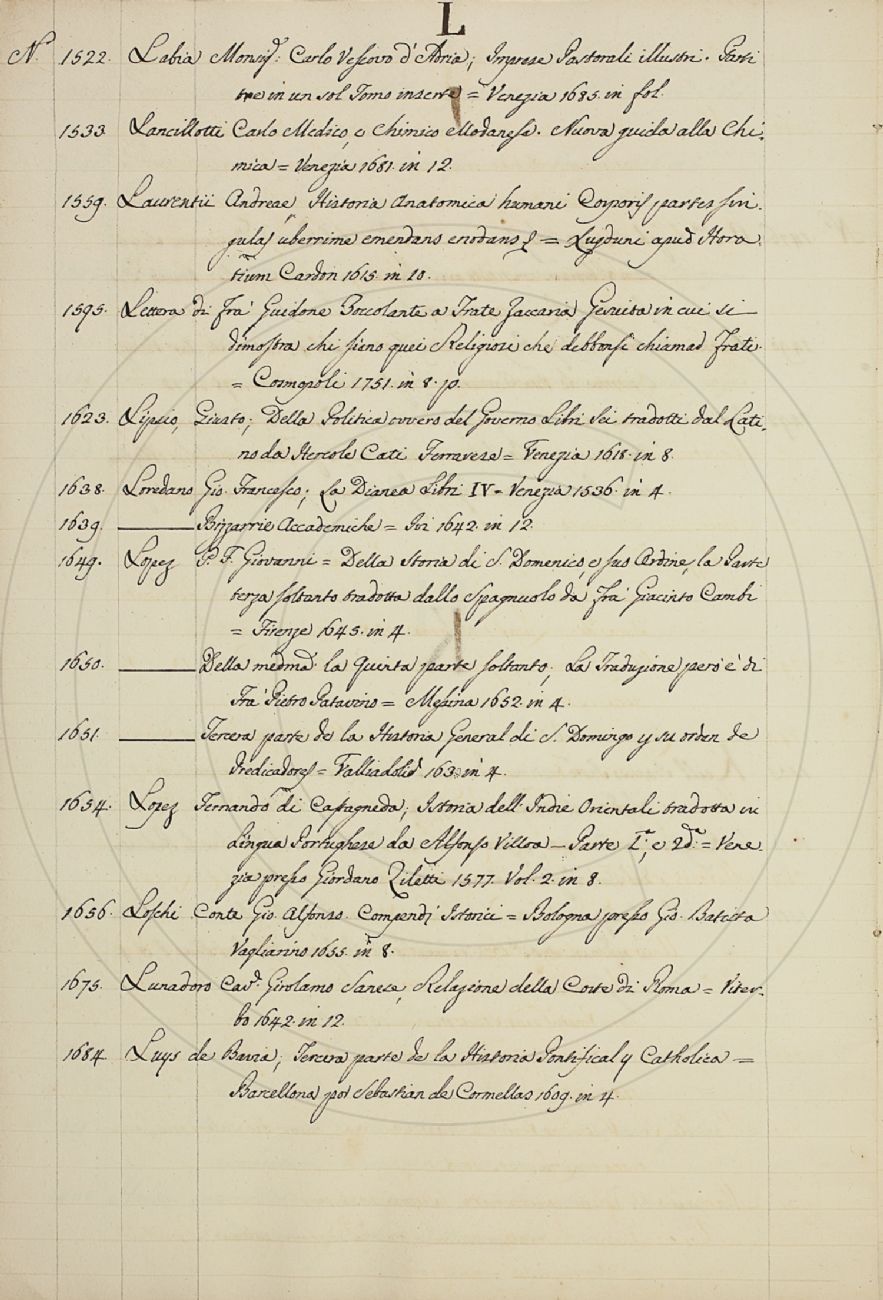 L
N.º 1522. Labia Monsig.r Carlo Vescovo d'Adria; Imprese Pastorali illustri. Parti
tre in un sol Tomo inserte = Venezia 1685. in fol.
1533. Lancillotti Carlo Medico, e Chimico Modanese. Nuova guida alla Chi-
mica = Venezia 1681. in 12.
1559. Laurentii Andreae, Historia Anatomica humani Corporis partes sin-
gulas uberrime emendans enodansq = Lugduni apud Hora-
tium Cardon 1615. in 10.
1595. Lettera di Fra' Guidone Zoccolante a Frate Zaccaria Gesuita in cui si
dimostra chi sieno quei Religiosi che debbonsi chiamar Frati
= Cosmopoli 1751. in 8. p.
1623. Lipsio, Giusto; Della Politica ovvero del Governo Libri sei tradotti dal Lati-
no da Hercole Cati Ferrarese = Venezia 1618. in 8.
1638. Loredano Gio. Francesco; La Dianea Libri IV = Venezia 1536. in 4.
1639. Bizzarrie Accademiche = Ivi 1642. in 12.
1649. Lopez P. F. Giovanni = Della Storia di S. Domenico, e suo Ordine, la Parte
terza soltanto tradotta dallo Spagnuolo da Fra' Giacinto Cambi
= Firenze 1645. in 4.
1650. Della medma. la Quinta parte soltanto; La Traduzione però è di
Fra' Pietro Patavino = Messina 1652. in 4.
1651. Tercera parte de la Historia General di S. Domingo y su orden de
Predicadores = Valliadolid in 4.
1654. Lopez Fernando di Castagneda; Istoria dell'Indie Orientali tradotta in
Lingua Portughese da Alfonso Villoa - Parte I.a, e 2da. = Vene-
zia presso Giordano Ziletti 1577. Vol. 2. in 8.
1656. Loschi Conte Gio. Alfonso. Compendj Istorici = Bologna presso Gio. Batista
Vagliarino 1655. in 8.
1675. Lunadoro Cav.r Girolamo Sanese, Relazione della Corte di Roma = Viter-
bo 1642. in 12.
1684. Luys de Bavia; Tercera parte de la Historia Pontifical y Catholica =
Barcellona por Sebastian de Cormellas 1609. in 4.